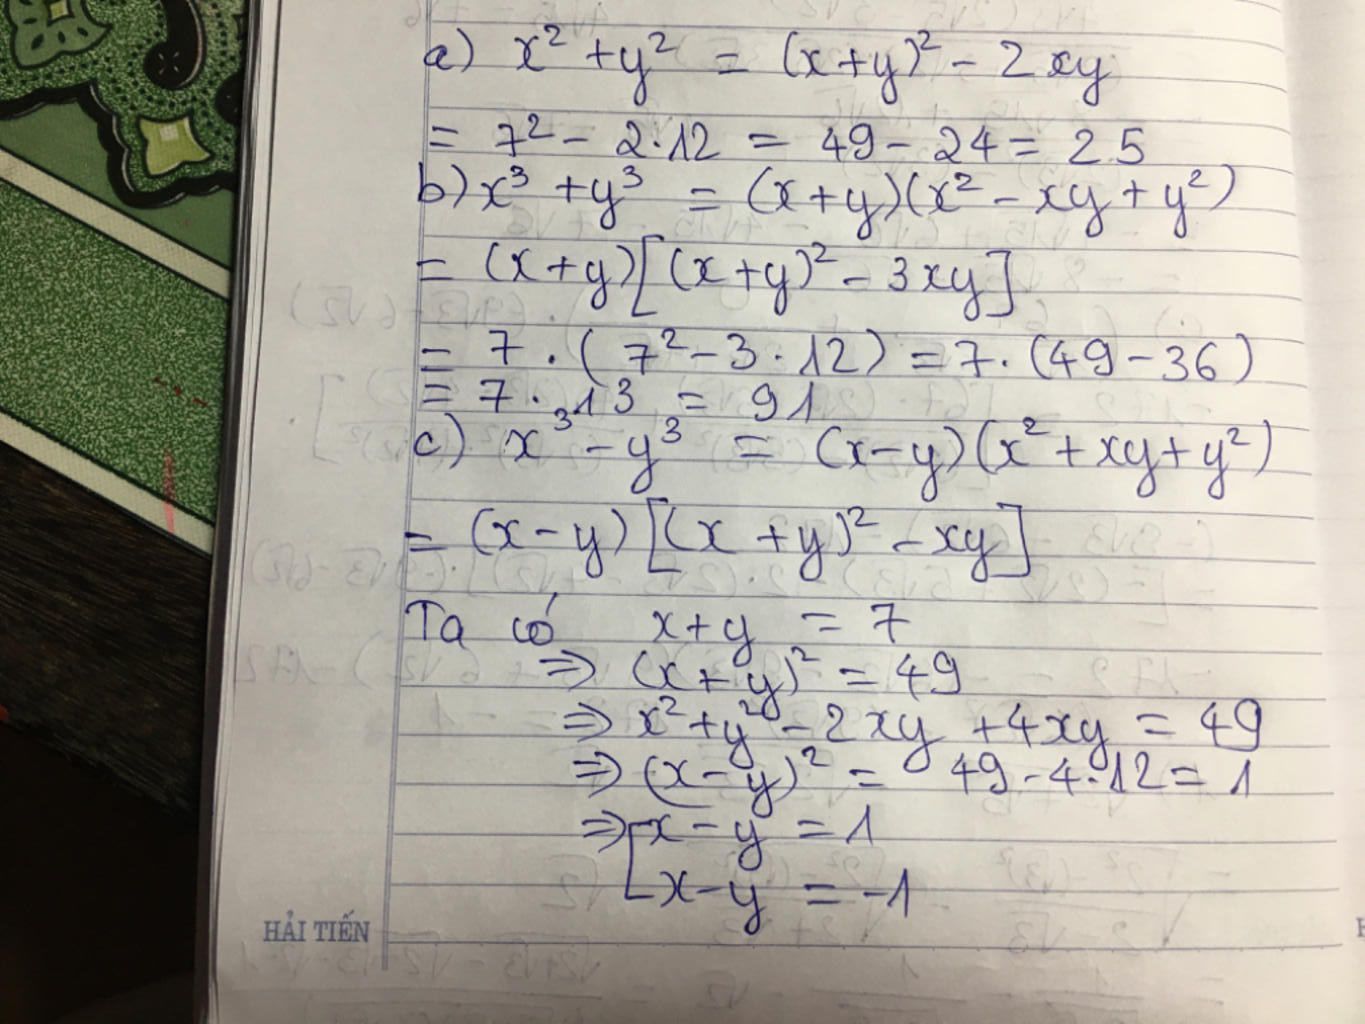 a) x² + y² = (x+y)² - 2xy
= 7² - 2·12 = 49 - 24 = 25
b) x³ + y³ = (x+y)(x² - xy + y²)
= (x+y)[(x+y)² - 3xy]
= 7·(7² - 3·12) = 7·(49 - 36)
= 7·13 = 91
c) x³ - y³ = (x-y)(x² + xy + y²)
= (x-y)[(x+y)² - xy]
Ta có x+y = 7
⇒ (x+y)² = 49
⇒ x² + y² - 2xy + 4xy = 49
⇒ (x-y)² = 49 - 4·12 = 1
⇒ [x-y = 1
x-y = -1
HẢI TIẾN